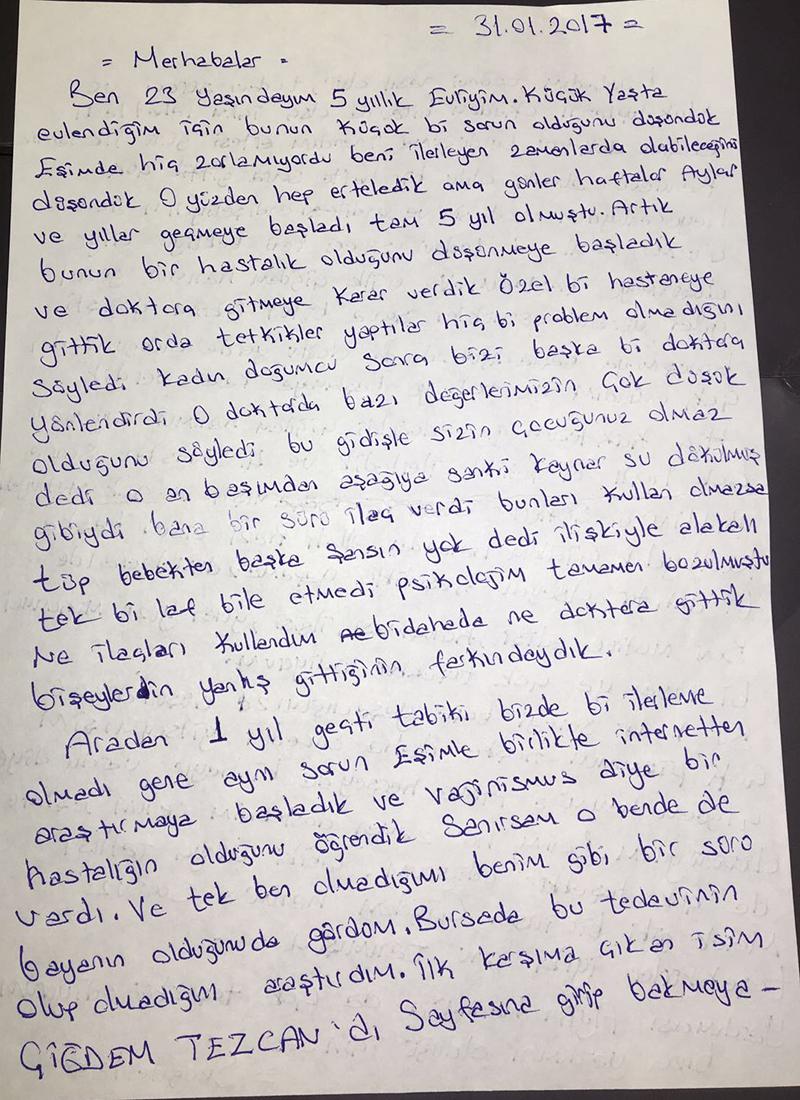 = 31.01.2017 =
= Merhabalar =
Ben 23 Yaşındayım 5 yıllık Evliyim. Küçük Yaşta
evlendiğim için bunun küçük bi sorun olduğunu düşündük
Eşimde hiç zorlamıyordu beni ilerleyen zamanlarda olabileceğini
düşündük O yüzden hep erteledik ama günler haftalar Aylar
ve yıllar geçmeye başladı tam 5 yıl olmuştu. Artık
bunun bir hastalık olduğunu düşünmeye başladık
ve doktora gitmeye karar verdik Özel bi hastaneye
gittik orda tetkikler yaptılar hiç bi problem olmadığını
Söyledi kadın doğumcu Sora bizi başka bi doktora
yönlendirdi O doktorda bazı değerlerimizin Çok düşük
olduğunu söyledi bu gidişle sizin çocuğunuz olmaz
dedi o an başımdan aşağıya sanki kaynar su dökülmüş
gibiydi bana bir sürü ilaç verdi bunları kullan olmazsa
tüp bebekten başka Şansın yok dedi ilişkiyle alakalı
tek bi laf bile etmedi psikolojim tamamen bozulmuştu
Ne ilaçları kullandım bidahada ne doktora gittik
bişeylerdin yanlış gittiğinin farkındaydık.
Aradan 1 yıl geçti tabiki bizde bi ilerleme
olmadı gene aynı sorun Eşimle birlikte internetten
araştırmaya başladık ve vajinismus diye bir
hastalığın olduğunu öğrendik Sanırsam o bende de
vardı. Ve tek ben olmadığımı benim gibi bir sürü
bayanın olduğunuda gördüm. Bursada bu tedavinin
olup olmadığını araştırdım. İlk karşıma çıkan isim
ÇİĞDEM TEZCAN'dı Sayfasına girip bakmaya -